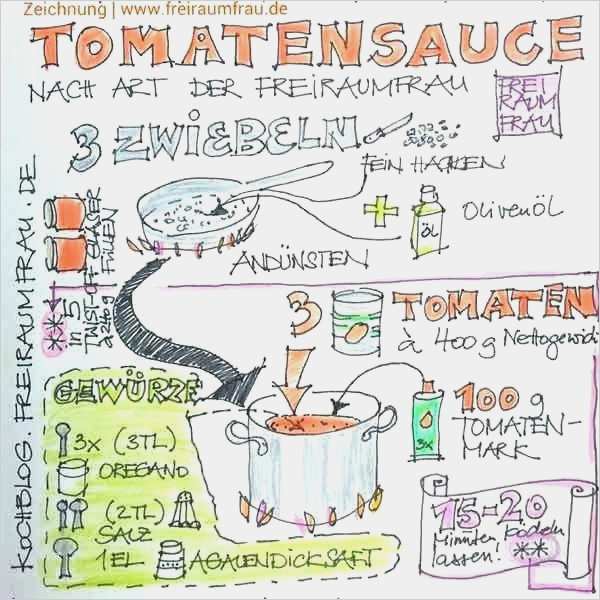 Zeichnung | www.freiraumfrau.de
TOMATENSAUCE
NACH ART DER FREIRAUMFRAU
FREI
RAUM
FRAU
3 ZWIEBELN
FEIN HACKEN
+ OLIVENÖL
ÖL
ANDÜNSTEN
KOCHBLOG. FREIRAUMFRAU. DE
** in 5
TWIST-OFF-GLÄSER
à 240 g
FÜLLEN
3 TOMATEN
à 400 g Nettogewicht
100 g
TOMATEN-
MARK
3x
GEWÜRZE
3x (3TL)
OREGANO
(2TL)
SALZ
1 EL AGAVENDICKSAFT
15-20
Minuten köcheln
lassen! **